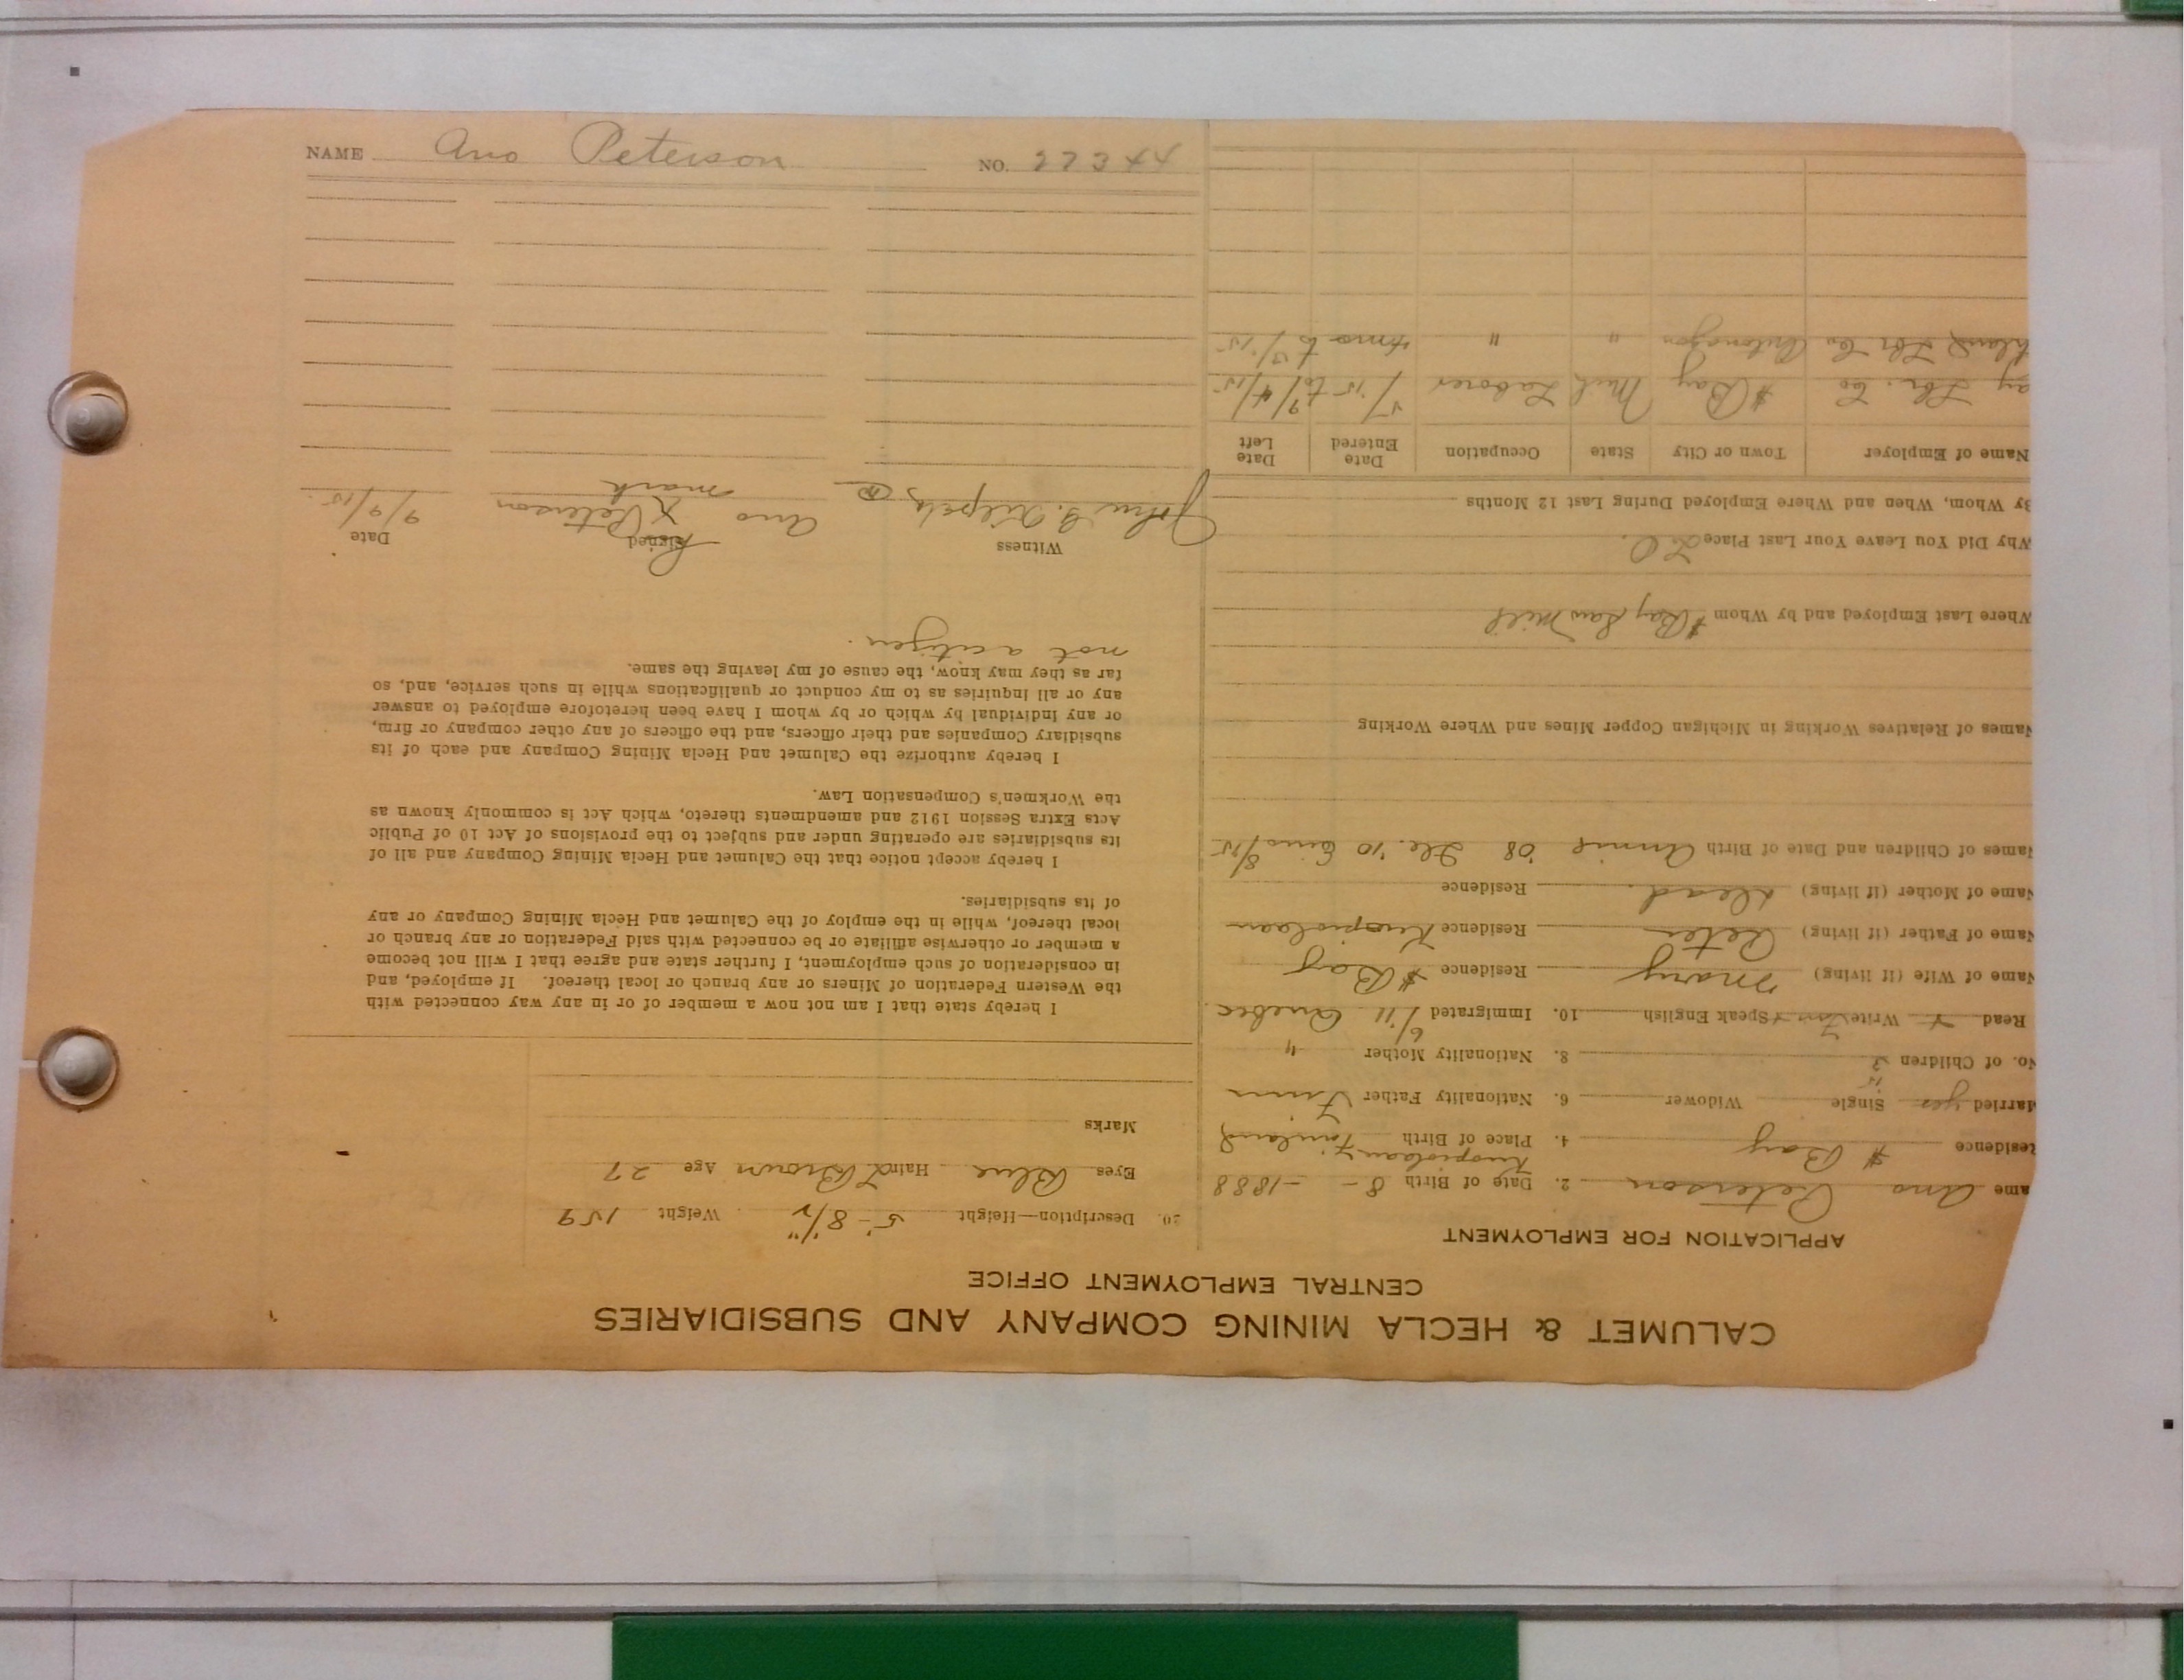 NAME Ano Peterson NO. 27344
CALUMET & HECLA MINING COMPANY AND SUBSIDIARIES
CENTRAL EMPLOYMENT OFFICE
APPLICATION FOR EMPLOYMENT
ame Ano Peterson 2. Date of Birth 8 - - 1888
Residence # Bay 4. Place of Birth Finland
Married yes Single Widower 6. Nationality Father Finn
No. of Children 3 8. Nationality Mother "
Read + Write Speak English 10. Immigrated 6/11 Quebec
Name of Wife (if living) Mary Residence # Bay
Name of Father (if living) Peter Residence
Name of Mother (if living) dead. Residence
Names of Children and Date of Birth Annie '08 '10 8/15
Names of Relatives Working in Michigan Copper Mines and Where Working
Where Last Employed and by Whom # Bay Saw Mill
Why Did You Leave Your Last Place L O.
By Whom, When and Where Employed During Last 12 Months
Name of Employer Town or City State Occupation Date Entered Date Left
ay Lbr. Co # Bay Mich Laborer 5/15 to 9/4/15
Lbr Co Ontonagon " " 4 mo to 5/15
20. Description—Height 5'- 8 1/2" Weight 159
Eyes Blue Hair L Brown Age 27
Marks
I hereby state that I am not now a member of or in any way connected with
the Western Federation of Miners or any branch or local thereof. If employed, and
in consideration of such employment, I further state and agree that I will not become
a member or otherwise affiliate or be connected with said Federation or any branch or
local thereof, while in the employ of the Calumet and Hecla Mining Company or any
of its subsidiaries.
I hereby accept notice that the Calumet and Hecla Mining Company and all of
its subsidiaries are operating under and subject to the provisions of Act 10 of Public
Acts Extra Session 1912 and amendments thereto, which Act is commonly known as
the Workmen's Compensation Law.
I hereby authorize the Calumet and Hecla Mining Company and each of its
subsidiary Companies and their officers, and the officers of any other company or firm,
or any individual by which or by whom I have been heretofore employed to answer
any or all inquiries as to my conduct or qualifications while in such service, and, so
far as they may know, the cause of my leaving the same.
not a citizen.
Witness Signed Date
John Ano X Peterson 9/9/15
mark